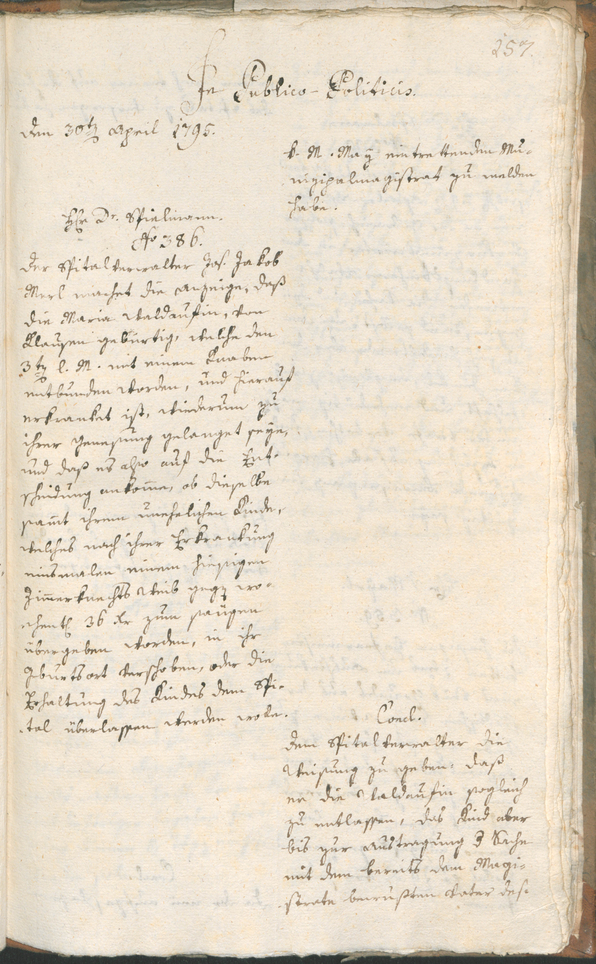 257.
In Publico-Politicis.
den 30ten April 1795.
k. M. May eintrettenden Mu-
nizipalmagistrat zu melden
habe.
Hr. Dr. Spielmann.
No 386.
Der Spitalverwalter Jos. Jakob
Merl machet die Anzeige, daß
die Maria Waldaufin, von
Klausen gebürtig, welche den
3ten l. M. mit einem Knaben
entbunden worden, und hierauf
erkranket ist, wiederum zu
ihrer Genesung gelanget seye,
und daß es also auf die Ent-
scheidung ankomme, ob dieselbe
samt ihrem unehelichen Kinde,
welches nach ihrer Erkrankung
einsmalen einem hiesigen
Zimmerknechts Weib gegen wo-
chentl. 36 kr zum säugen
übergeben worden, in ihr
Geburtsort verschoben, oder die
Erhaltung des Kindes dem Spi-
tal überlassen werden wolle.
Concl.
dem Spitalverwalter die
Weisung zu geben: daß
er die Waldaufin sogleich
zu entlassen, das Kind aber
bis zur Austragung der Sache
mit dem bereits dem Magi-
strate bewußten Vater des-